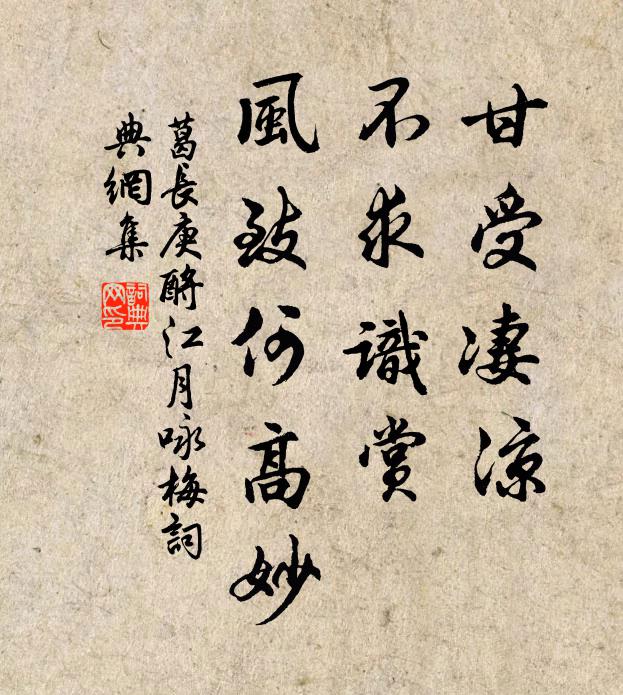 甘受凄涼
不求識賞
風致何高妙
葛長庚酹江月咏梅詞
典網集
詞典網印